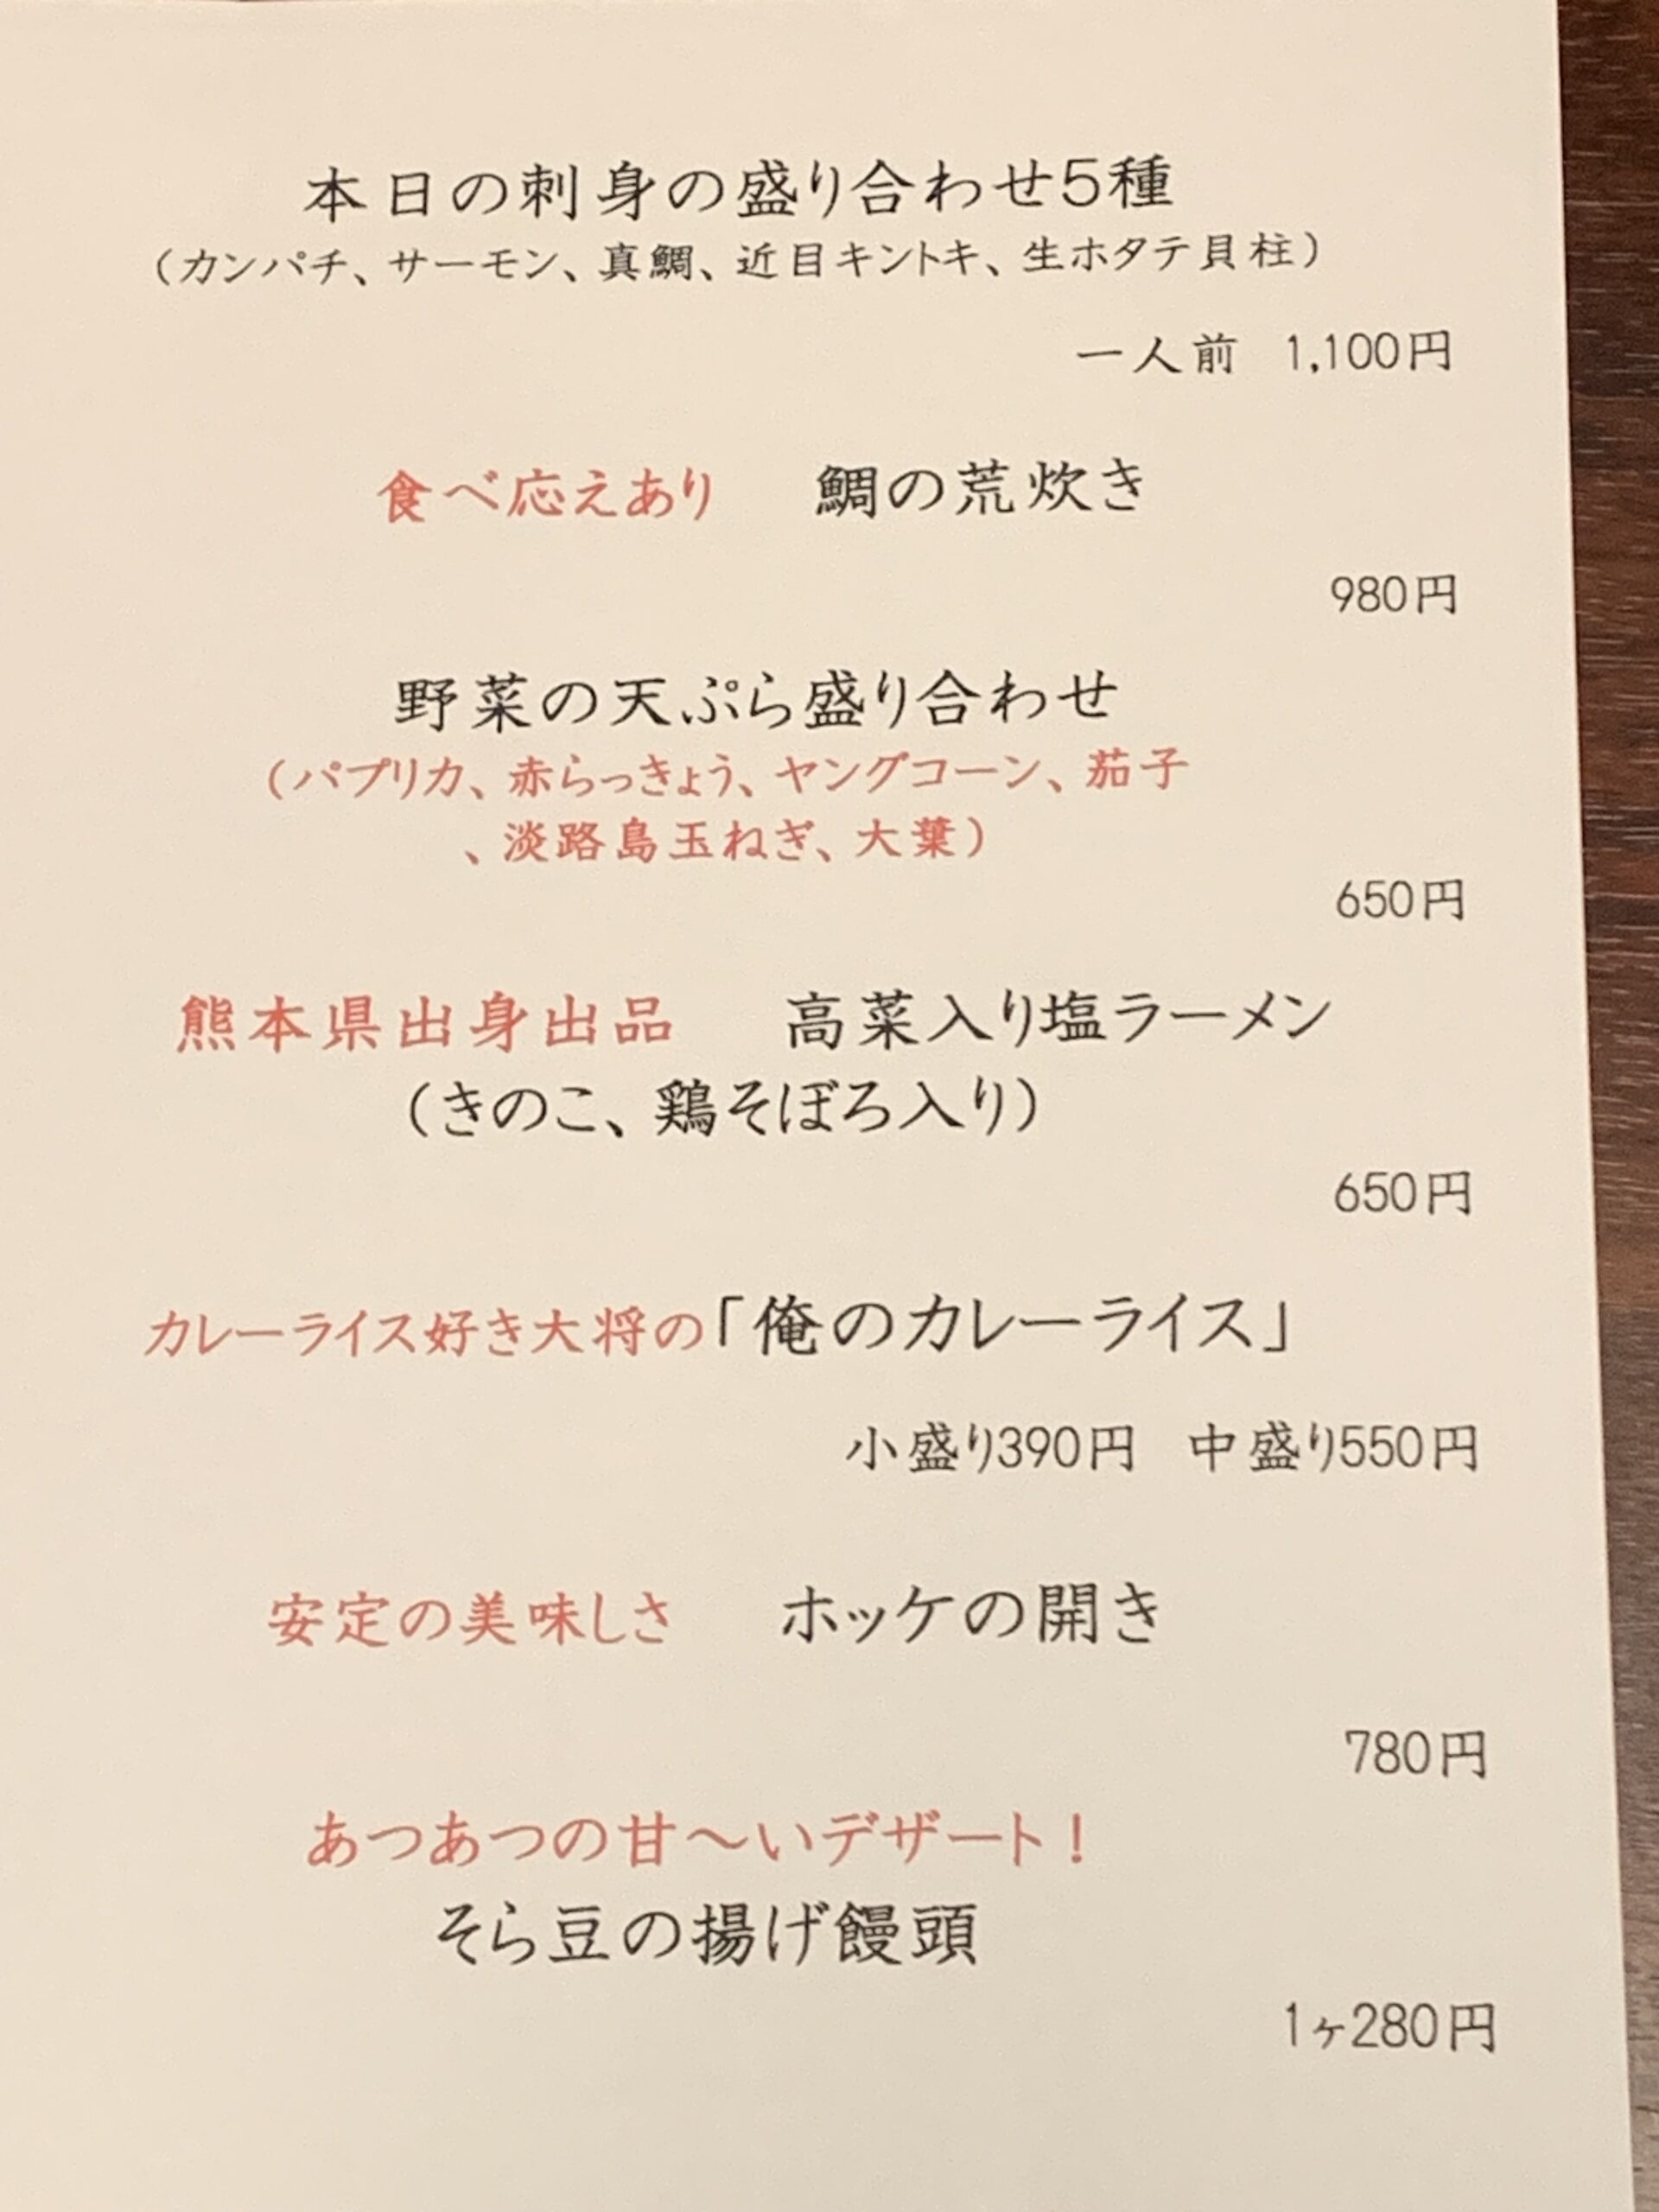 本日の刺身の盛り合わせ5種
（カンパチ、サーモン、真鯛、近目キントキ、生ホタテ貝柱）
一人前 1,100円
食べ応えあり 鯛の荒炊き
980円
野菜の天ぷら盛り合わせ
（パプリカ、赤らっきょう、ヤングコーン、茄子
、淡路島玉ねぎ、大葉）
650円
熊本県出身出品 高菜入り塩ラーメン
（きのこ、鶏そぼろ入り）
650円
カレーライス好き大将の「俺のカレーライス」
小盛り390円 中盛り550円
安定の美味しさ ホッケの開き
780円
あつあつの甘～いデザート！
そら豆の揚げ饅頭
1ヶ280円